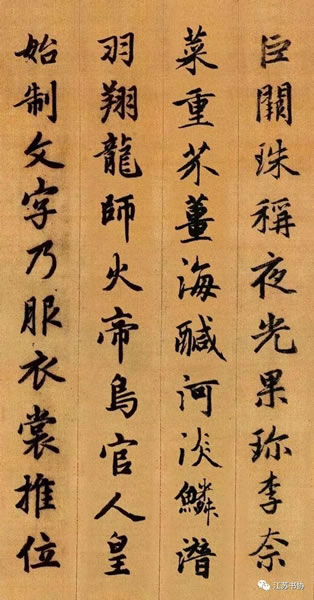 巨闕珠稱夜光果珎李奈
菜重芥薑海醎河淡鱗潛
羽翔龍師火帝鳥官人皇
始制文字乃服衣裳推位
江苏书协